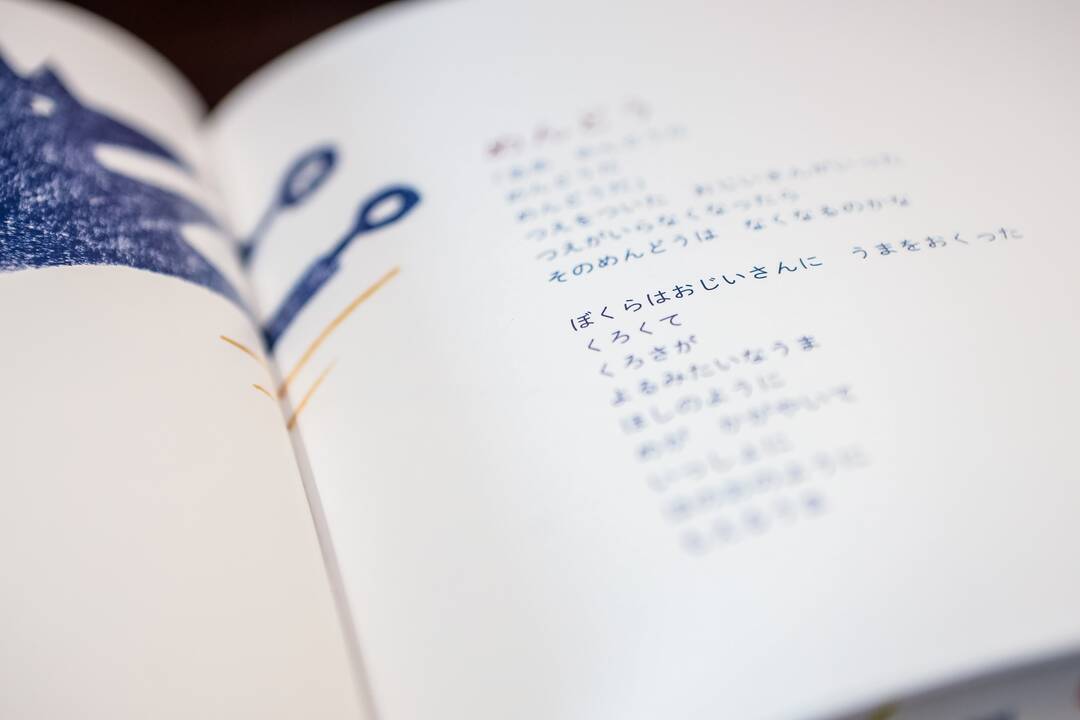 めんどう
めんどうだ
めんどうだ」
つえをついた　おじいさんがいった
つえがいらなくなったら
そのめんどうは　なくなるのかな
ぼくらはおじいさんに　うまをおくった
くろくて
くろさが
よるみたいなうま
ほしのように
めが　かがやいて
いっしょに